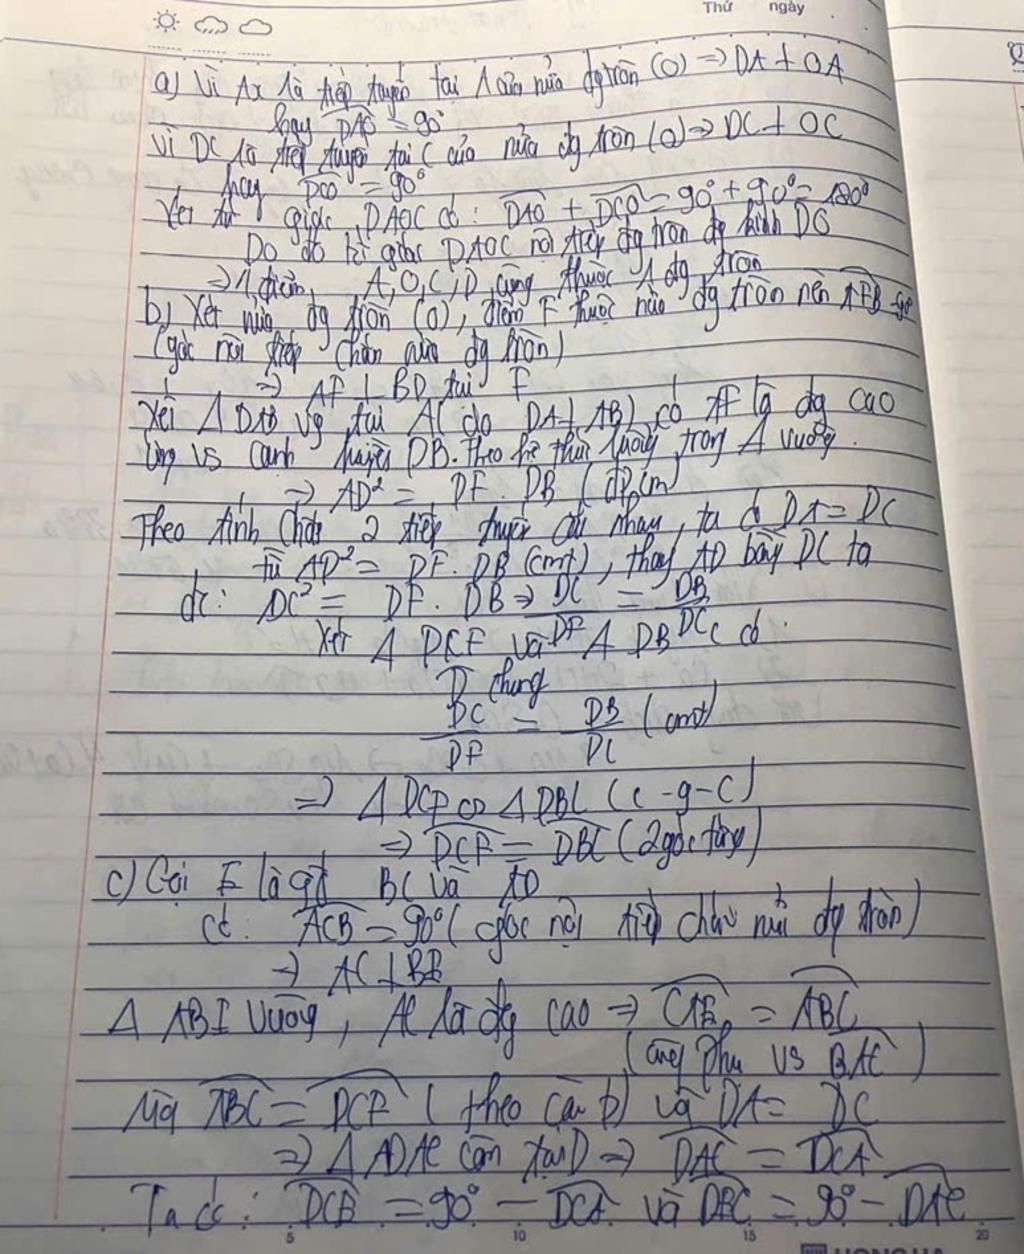 Thứ ngày
a) Vì Ax là tiếp tuyến tại A của nửa đg tròn (O) => DA ⊥ OA
hay DAO = 90°
Vì DC là tiếp tuyến tại C của nửa đg tròn (O) => DC ⊥ OC
hay DCO = 90°
Xét tứ giác DAOC có: DAO + DCO = 90° + 90° = 180°
Do đó tứ giác DAOC nội tiếp đg tròn đg kính DO
=> 4 điểm A, O, C, D cùng thuộc 1 đg tròn
b) Xét nửa đg tròn (O), điểm F thuộc nửa đg tròn nên AFB = 90°
(góc nội tiếp chắn nửa đg tròn)
=> AF ⊥ BD tại F
Xét Δ DAB vg tại A (do DA ⊥ AB) có AF là đg cao
ứng vs cạnh huyền DB. Theo hệ thức lượng trong Δ vuông
=> AD² = DF . DB (đpcm)
Theo tính chất 2 tiếp tuyến cắt nhau, ta có DA = DC
từ AD² = DF . DB (cmt), thay AD bằng DC ta
đc: DC² = DF . DB => DC/DF = DB/DC
Xét Δ DCF và Δ DBC có:
D chung
DC/DF = DB/DC (cmt)
=> Δ DCF ∽ Δ DBC (c-g-c)
=> DCF = DBC (2 góc tứng)
c) Gọi E là gđ BC và AD
Có: ACB = 90° (góc nội tiếp chắn nửa đg tròn)
=> AC ⊥ BE
Δ ABE vuông, AC là đg cao => CAE = ABC
(cùng phụ vs BAC)
Mà ABC = DCF (theo câu b) và DA = DC
=> Δ ADAC cân tại D => DAC = DCA
Ta có: DCE = 90° - DCA và DEC = 90° - DAC
5 10 15 20
HONG HA